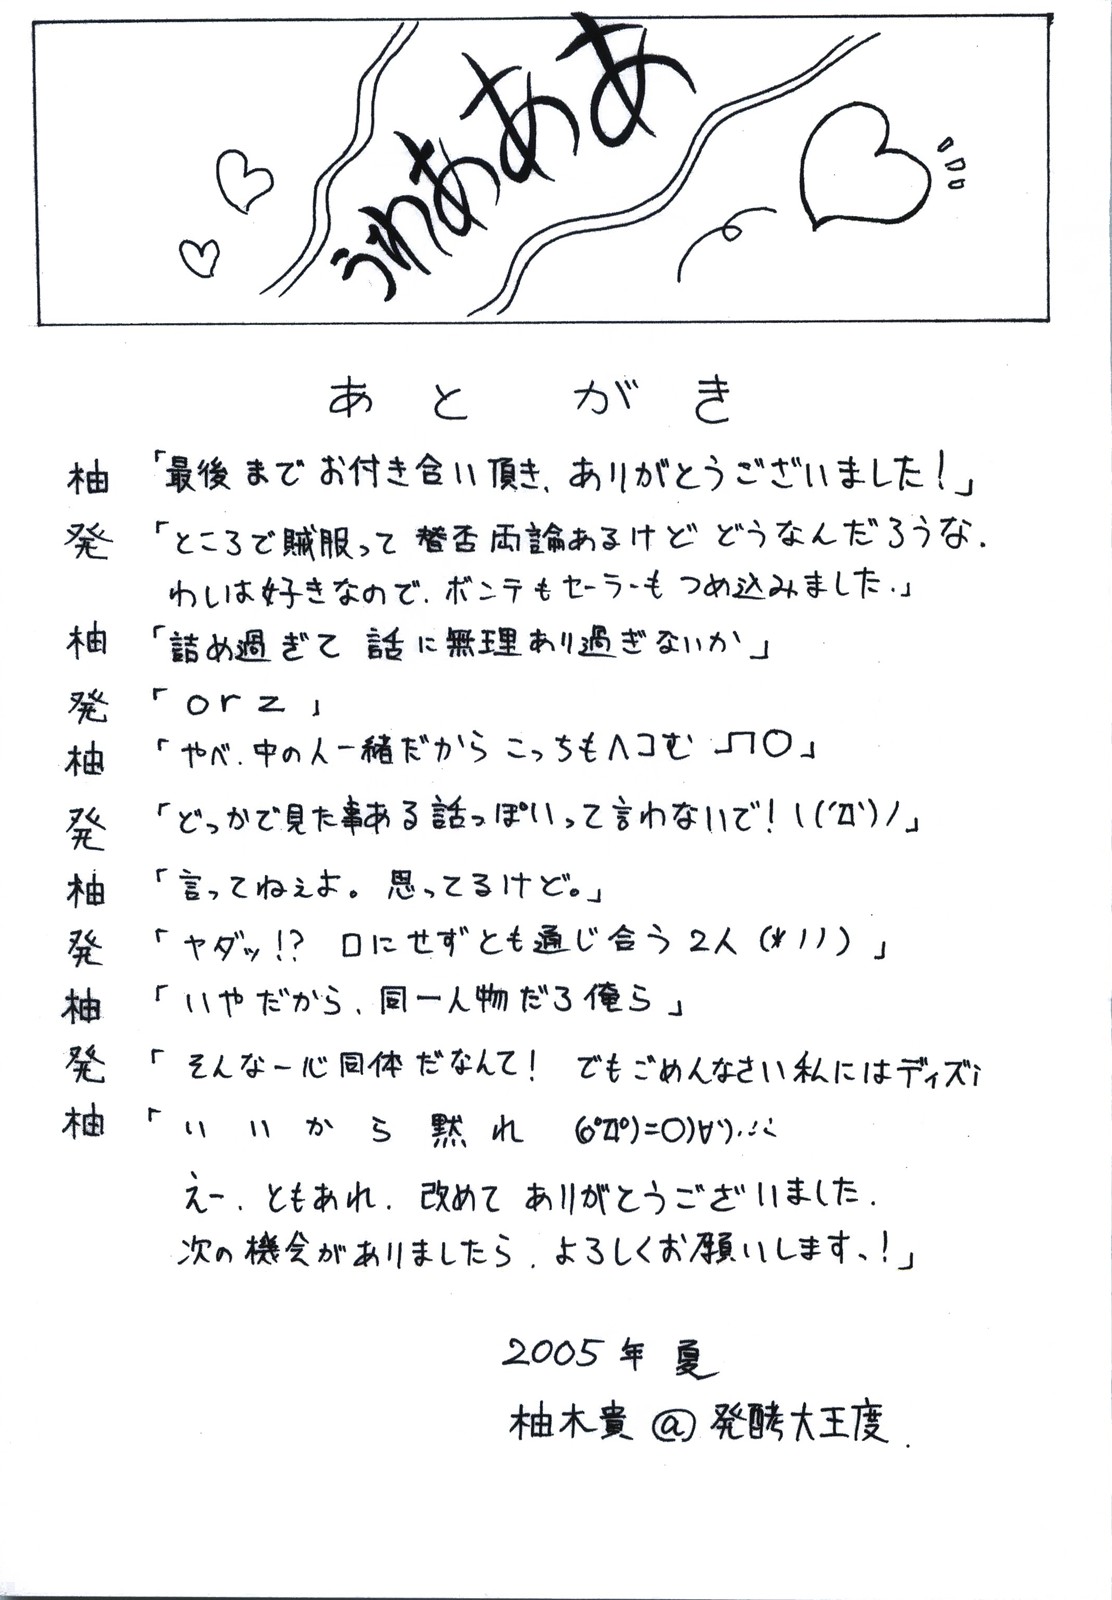 うわあああ
あとがき
柚「最後までお付き合い頂き、ありがとうございました！」
発「ところで賊服って賛否両論あるけどどうなんだろうな.
わしは好きなので.ボンテもセーラーもつめ込みました.」
柚「詰め過ぎて話に無理あり過ぎないか」
発「orz」
柚「やべ.中の人一緒だからこっちもヘコむ ﾉ冂○」
発「どっかで見た事ある話っぽいって言わないで！ヽ(´Д`)ノ」
柚「言ってねぇよ。思ってるけど。」
発「ヤダッ!? 口にせずとも通じ合う2人(*ノノ)」
柚「いやだから、同一人物だろ俺ら」
発「そんな一心同体だなんて！でもごめんなさい私にはディズi
柚「いいから黙れ (o゚Д゚)=○)∀`).∴
えー.ともあれ.改めてありがとうございました.
次の機会がありましたら.よろしくお願いします、！」
2005年 夏
柚木貴@発酵大王度.